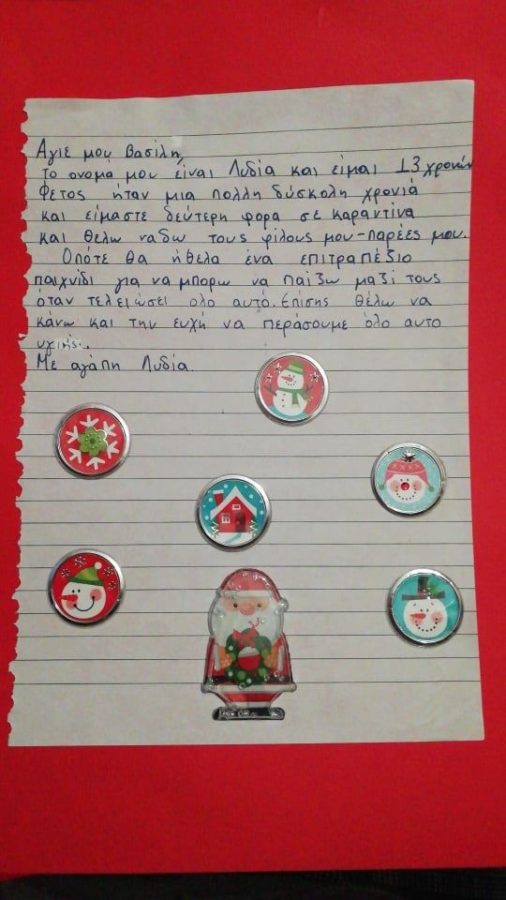 Αγιε μου Βασίλη,
το ονομα μου είναι Λυδία και είμαι 13 χρονών
Φετος ήταν μια πολλη δύσκολη χρονιά
και είμαστε δεύτερη φορα σε καραντίνα
και θελω ναδω τους φίλους μου-παρέες μου.
Οπότε θα ήθελα ένα επιτραπέζιο
παιχνίδι για να μπορω να παίξω μαζί τους
όταν τελειώσει ολο αυτό. Επίσης θέλω να
κάνω και την ευχή να περάσουμε όλο αυτο
υγιής.
Με αγάπη Λυδία.